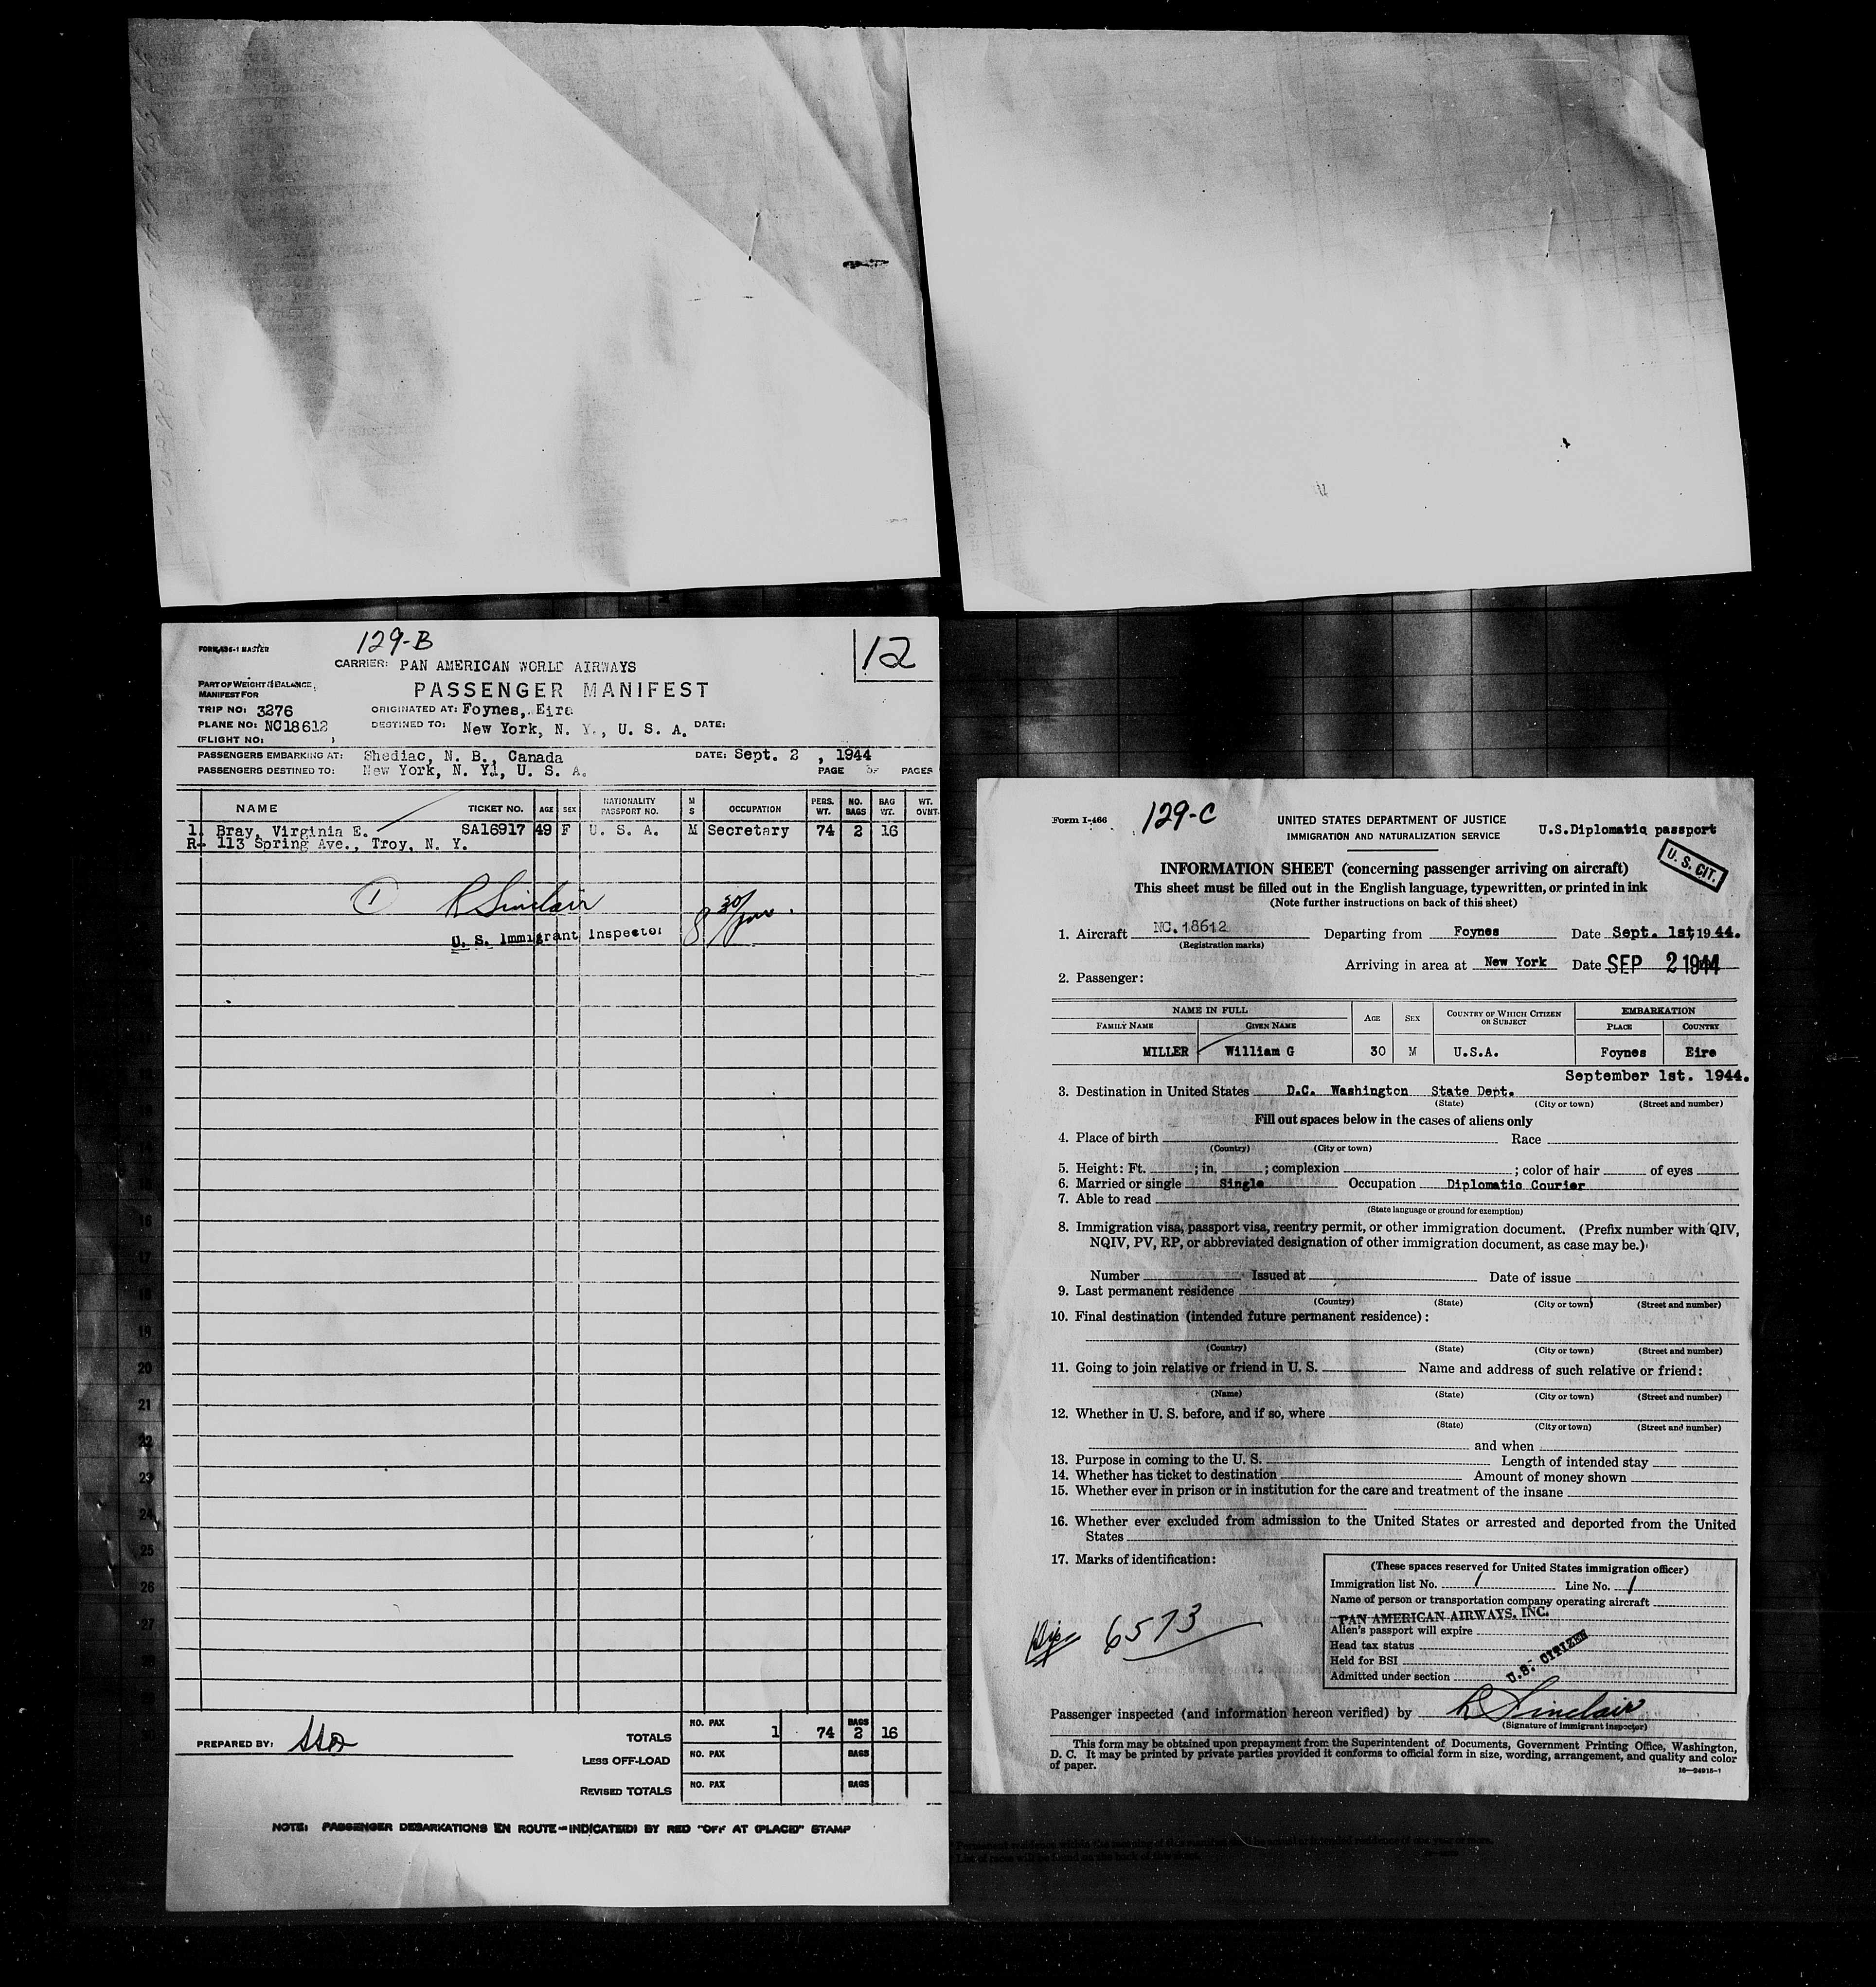 129-B
12
FORM 436-1 MASTER
CARRIER: PAN AMERICAN WORLD AIRWAYS
PART OF WEIGHT & BALANCE
MANIFEST FOR
PASSENGER MANIFEST
TRIP NO: 3276
ORIGINATED AT: Foynes, Eire
PLANE NO: NC18612
DESTINED TO: New York, N. Y., U. S. A. DATE:
(FLIGHT NO: )
PASSENGERS EMBARKING AT: Shediac, N. B., Canada DATE: Sept. 2 , 1944
PASSENGERS DESTINED TO: New York, N. Y., U. S. A. PAGE OF PAGES
NAME TICKET NO. AGE SEX NATIONALITY PASSPORT NO. M S OCCUPATION PERS. WT. NO. BAGS BAG WT. WT. OVNT.
1. Bray, Virginia E. SA16917 49 F U. S. A. M Secretary 74 2 16
R- 113 Spring Ave., Troy, N. Y.
1 R Sinclair 8 30/pm.
U. S. Immigrant Inspector
16
17
18
19
20
21
22
23
24
25
26
27
PREPARED BY:
TOTALS NO. PAX 1 74 BAGS 2 16
LESS OFF-LOAD NO. PAX BAGS
REVISED TOTALS NO. PAX BAGS
NOTE: PASSENGER DEBARKATIONS EN ROUTE INDICATED BY RED "OFF AT (PLACE)" STAMP
Form I-466
129-C
UNITED STATES DEPARTMENT OF JUSTICE
IMMIGRATION AND NATURALIZATION SERVICE
U.S.Diplomatic passport
U. S. CIT.
INFORMATION SHEET (concerning passenger arriving on aircraft)
This sheet must be filled out in the English language, typewritten, or printed in ink
(Note further instructions on back of this sheet)
1. Aircraft NC.18612 Departing from Foynes Date Sept. 1st, 1944.
(Registration marks)
Arriving in area at New York Date SEP 2 1944
2. Passenger:
NAME IN FULL AGE SEX COUNTRY OF WHICH CITIZEN OR SUBJECT EMBARKATION
FAMILY NAME GIVEN NAME PLACE COUNTRY
MILLER William G 30 M U.S.A. Foynes Eire
September 1st. 1944.
3. Destination in United States D.C. Washington State Dept.
(State) (City or town) (Street and number)
Fill out spaces below in the cases of aliens only
4. Place of birth Race
(Country) (City or town)
5. Height: Ft. ; in. ; complexion ; color of hair of eyes
6. Married or single Single Occupation Diplomatic Courier
7. Able to read
(State language or ground for exemption)
8. Immigration visa, passport visa, reentry permit, or other immigration document. (Prefix number with QIV,
NQIV, PV, RP, or abbreviated designation of other immigration document, as case may be.)
Number Issued at Date of issue
9. Last permanent residence
(Country) (State) (City or town) (Street and number)
10. Final destination (intended future permanent residence):
(Country) (State) (City or town) (Street and number)
11. Going to join relative or friend in U. S. Name and address of such relative or friend:
(Name) (State) (City or town) (Street and number)
12. Whether in U. S. before, and if so, where
(State) (City or town) (Street and number)
and when
13. Purpose in coming to the U. S. Length of intended stay
14. Whether has ticket to destination Amount of money shown
15. Whether ever in prison or in institution for the care and treatment of the insane
16. Whether ever excluded from admission to the United States or arrested and deported from the United
States
17. Marks of identification:
(These spaces reserved for United States immigration officer)
Immigration list No. 1 Line No. 1
Name of person or transportation company operating aircraft
PAN AMERICAN AIRWAYS, INC.
Alien's passport will expire
Head tax status
Held for BSI
Admitted under section
U.S. CITIZEN
Dip 6573
Passenger inspected (and information hereon verified) by R Sinclair
(Signature of immigrant inspector)
This form may be obtained upon prepayment from the Superintendent of Documents, Government Printing Office, Washington,
D. C. It may be printed by private parties provided it conforms to official form in size, wording, arrangement, and quality and color
of paper.
16—24915-1